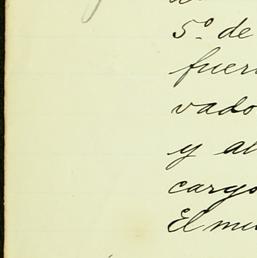 5.º de
fuer
vado
y al
cargo
El mu